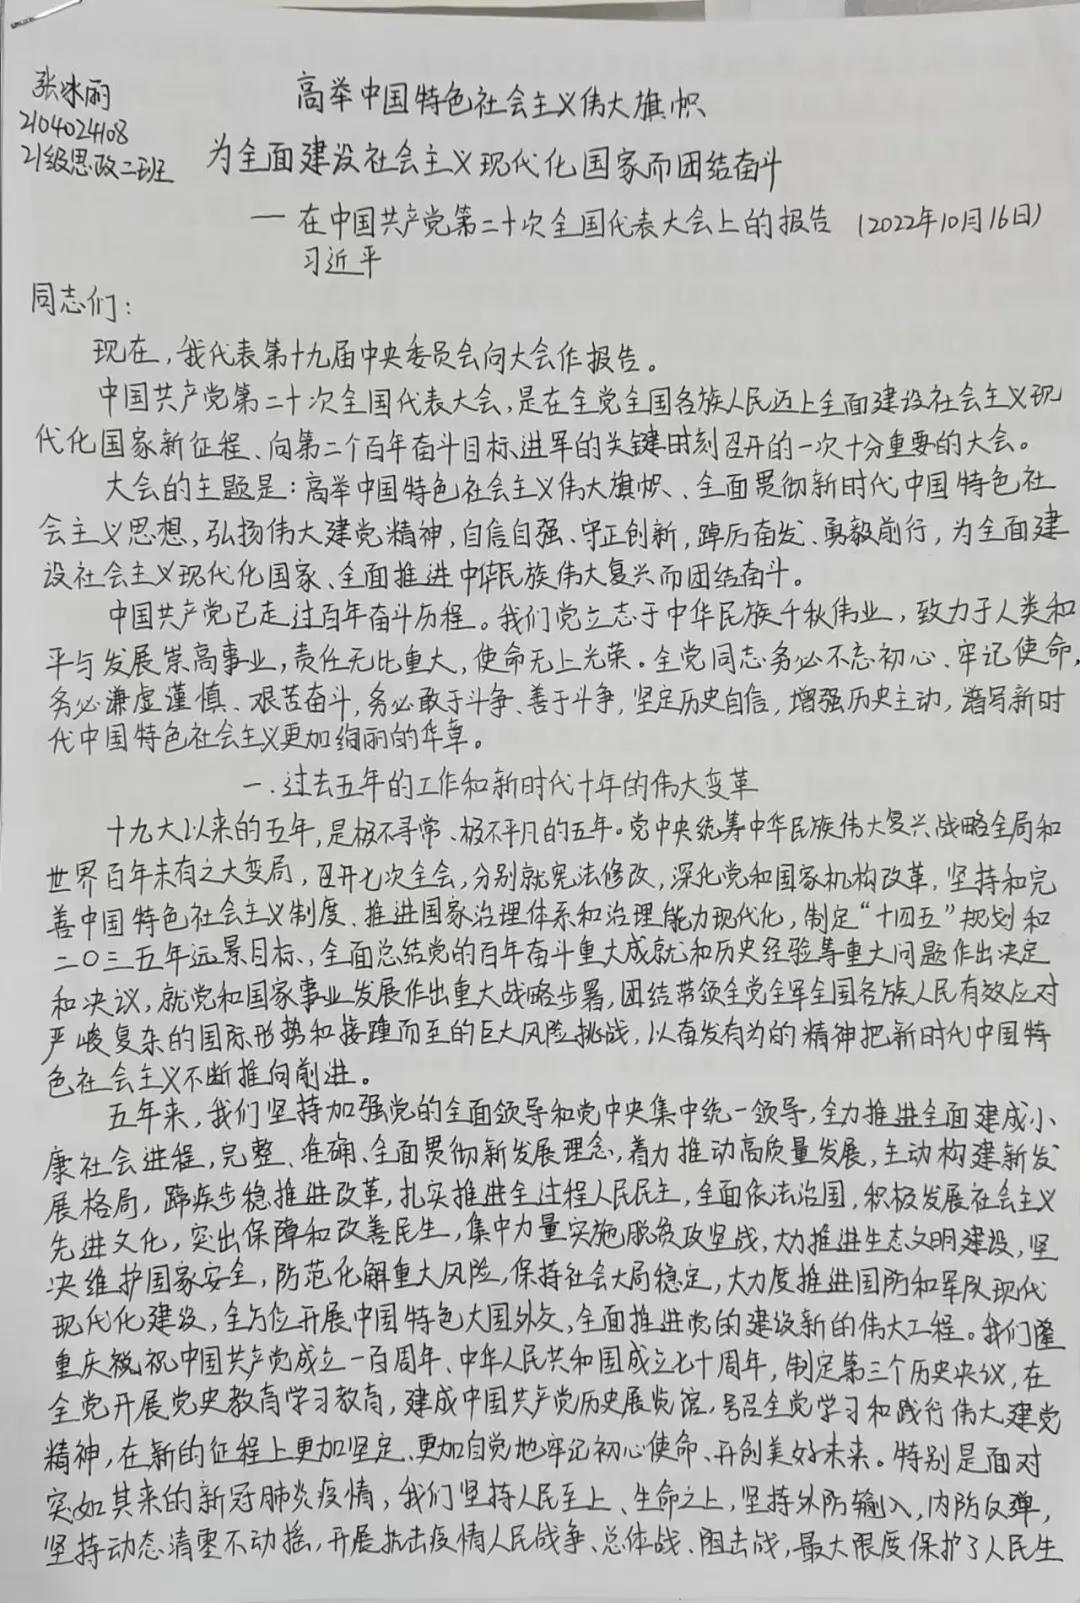 张冰丽
2104024108
21级思政二班
高举中国特色社会主义伟大旗帜
为全面建设社会主义现代化国家而团结奋斗
— 在中国共产党第二十次全国代表大会上的报告 (2022年10月16日)
习近平
同志们:
现在,我代表第十九届中央委员会向大会作报告。
中国共产党第二十次全国代表大会,是在全党全国各族人民迈上全面建设社会主义现
代化国家新征程、向第二个百年奋斗目标进军的关键时刻召开的一次十分重要的大会。
大会的主题是:高举中国特色社会主义伟大旗帜、全面贯彻新时代中国特色社
会主义思想,弘扬伟大建党精神,自信自强、守正创新,踔厉奋发、勇毅前行,为全面建
设社会主义现代化国家、全面推进中华民族伟大复兴而团结奋斗。
中国共产党已走过百年奋斗历程。我们党立志于中华民族千秋伟业,致力于人类和
平与发展崇高事业,责任无比重大,使命无上光荣。全党同志务必不忘初心、牢记使命,
务必谦虚谨慎、艰苦奋斗,务必敢于斗争、善于斗争,坚定历史自信,增强历史主动,谱写新时
代中国特色社会主义更加绚丽的华章。
一.过去五年的工作和新时代十年的伟大变革
十九大以来的五年,是极不寻常、极不平凡的五年。党中央统筹中华民族伟大复兴战略全局和
世界百年未有之大变局,召开七次全会,分别就宪法修改,深化党和国家机构改革,坚持和完
善中国特色社会主义制度、推进国家治理体系和治理能力现代化,制定“十四五”规划和
二〇三五年远景目标,全面总结党的百年奋斗重大成就和历史经验等重大问题作出决定
和决议,就党和国家事业发展作出重大战略步署,团结带领全党全军全国各族人民有效应对
严峻复杂的国际形势和接踵而至的巨大风险挑战,以奋发有为的精神把新时代中国特
色社会主义不断推向前进。
五年来,我们坚持加强党的全面领导和党中央集中统一领导,全力推进全面建成小
康社会进程,完整、准确、全面贯彻新发展理念,着力推动高质量发展,主动构建新发
展格局,蹄疾步稳推进改革,扎实推进全过程人民民主,全面依法治国,积极发展社会主义
先进文化,突出保障和改善民生,集中力量实施脱贫攻坚战,大力推进生态文明建设,坚
决维护国家安全,防范化解重大风险,保持社会大局稳定,大力度推进国防和军队现代
现代化建设,全方位开展中国特色大国外交,全面推进党的建设新的伟大工程。我们隆
重庆祝祝中国共产党成立一百周年、中华人民共和国成立七十周年,制定第三个历史决议,在
全党开展党史教育学习教育,建成中国共产党历史展览馆,号召全党学习和践行伟大建党
精神,在新的征程上更加坚定、更加自觉地牢记初心使命、开创美好未来。特别是面对
突如其来的新冠肺炎疫情,我们坚持人民至上、生命之上,坚持外防输入,内防反弹,
坚持动态清零不动摇,开展抗击疫情人民战争、总体战、阻击战,最大限度保护了人民生